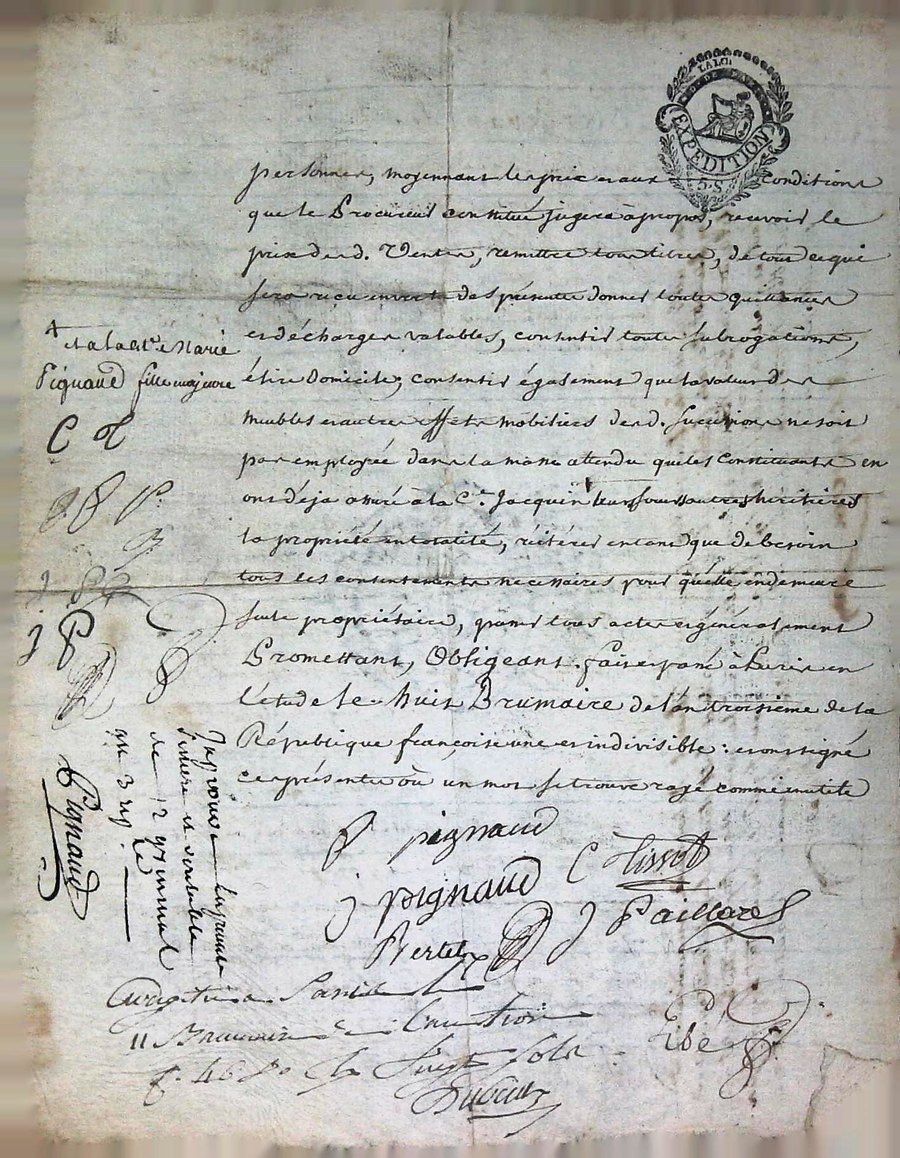 LA LOI
EXPEDITION
5. S.
personnes, moyennant les prix et aux conditions
que le Procureur constitué jugera à propos, recevoir le
prix desd. Ventes, remettre tous titres, de tout ce qui
sera reçu en vertu des présentes donner toutes quittances
et décharges valables, consentir toutes subrogations,
élire Domicile, consentir également que la valeur des
meubles et autres effets mobiliers desd. successions ne soit
pas employée dans la masse attendu que les Constituants en
ont déja assuré à la Ce. Jacquin leurs soeurs autres héritières
la propriété en totalité, réitérer en tant que de besoin
tous les consentements nécessaires pour qu'elle en demeure
seule propriétaire, passer tous actes et généralement
Promettant, Obligeant. fait et passé à Paris en
L'étude le huit Brumaire de l'an troisième de la
République françoise une et indivisible : et ont signé
ces présentes où un mot se trouve rayé comme inutile
et à la Cite. Marie
Pignaud fille majeure
Pignaud
P pignaud
C Tissot
J pignaud
J Paillard
Bertels
Enregistré à
11 Brumaire
f. 46
vingt sols
Dubois
sincère et véritable
de 12 germinal
an 3
Pignaud